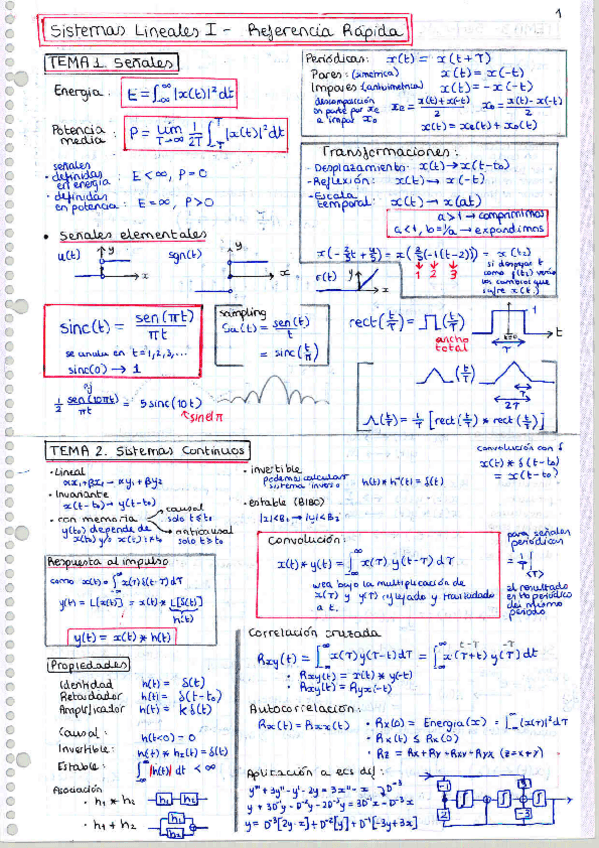 1
Sistemas Lineales I - Referencia Rápida
TEMA 1. Señales
Energía: E = ∫_{-∞}^{∞} |x(t)|² dt
Potencia media : P = lím_{T→∞} 1/2T ∫_{-T}^{T} |x(t)|² dt
señales
· definidas en energía : E < ∞, P = 0
· definidas en potencia : E = ∞, P > 0
Periódicas: x(t) = x(t+T)
Pares: (simetrica) x(t) = x(-t)
Impares (antisimetrica) x(t) = -x(-t)
descomposición en parte par xe e impar xo
xe = x(t)+x(-t)/2 xo = x(t)-x(-t)/2
x(t) = xe(t) + xo(t)
Transformaciones:
- Desplazamiento: x(t) → x(t-t₀)
- Reflexión: x(t) → x(-t)
- Escala temporal: x(t) → x(at)
a > 1 → comprimimos
a < 1, b = 1/a → expandimos
x(-2/5 t + 4/5) = x(2/5(-1(t-2))) = x(t₂)
1 2 3
· Señales elementales
u(t) y x
sgn(t) y x
r(t) y x
sinc(t) = sen(πt)/πt
se anula en t = 1, 2, 3, ...
sinc(0) → 1
ej
1/2 sen(10πt)/πt = 5 sinc(10t)
sin el π
sampling
Sa(t) = sen(t)/t
= sinc(t/π)
rect(t/τ) = Π(t/τ)
ancho total
1 t
τ
Λ(t/τ)
τ
2τ
Λ(t) = 1/τ [rect(t/τ) * rect(t/τ)]
TEMA 2. Sistemas Continuos
· Lineal
αx₁+βx₂ → αy₁ + βy₂
· Invariante
x(t-t₀) → y(t-t₀)
· con memoria
y(t₀) depende de x(t₁) y/o x(t) : t ≠ t₀
causal
solo t ≤ t₀
anticausal
solo t ≥ t₀
· invertible
podemos calcular sistema inverso
h(t) * hⁱ(t) = δ(t)
· estable (BIBO)
|x| < B₁ → |y| < B₂
convolución con δ
x(t) * δ(t-t₀)
= x(t-t₀)
Respuesta al impulso
como x(t) = ∫_{-∞}^{∞} x(τ) δ(t-τ) dτ
y(t) = L[x(t)] = x(t) * L[δ(t)]
h(t)
y(t) = x(t) * h(t)
Convolución:
x(t) * y(t) = ∫_{-∞}^{∞} x(τ) y(t-τ) dτ
área bajo la multiplicación de
x(τ) y y(τ) reflejado y trasladado
a t.
para señales periódicas
= 1/T ∫_{<T>}
el resultado es tb periódico del mismo periodo
Propiedades
Identidad h(t) = δ(t)
Retardador h(t) = δ(t-t₀)
Amplificador h(t) = kδ(t)
Causal : h(t<0) = 0
Invertible: h(t) * h₂(t) = δ(t)
Estable: ∫_{-∞}^{∞} |h(t)| dt < ∞
Asociación
· h₁ * h₂ h₁ h₂
· h₁ + h₂ h₁ h₂
Correlación cruzada
Rxy(t) = ∫_{-∞}^{∞} x(τ) y(τ-t) dτ = ∫_{-∞}^{∞} x(τ+t) y(τ) dt
t-τ -τ
· Rxy(t) = x(t) * y(-t)
· Rxy(t) = Ryx(-t)
Autocorrelación:
Rx(t) = Rxx(t)
· Rx(0) = Energía(x) = ∫_{-∞}^{∞} (x(τ))² dτ
· Rx(t) ≤ Rx(0)
· Rz = Rx + Ry + Rxy + Ryx (z = x+y)
Aplicación a ecs dif:
y''' + 3y'' - y' - 2y = 3x'' - x D⁻³
y + 3D⁻¹y - D⁻²y - 2D⁻³y = 3D⁻¹x - D⁻³x
y = D⁻³[2y-x] + D⁻²[y] + D⁻¹[-3y+3x]
-1 3 ∫ ∫ ∫ 2 -3